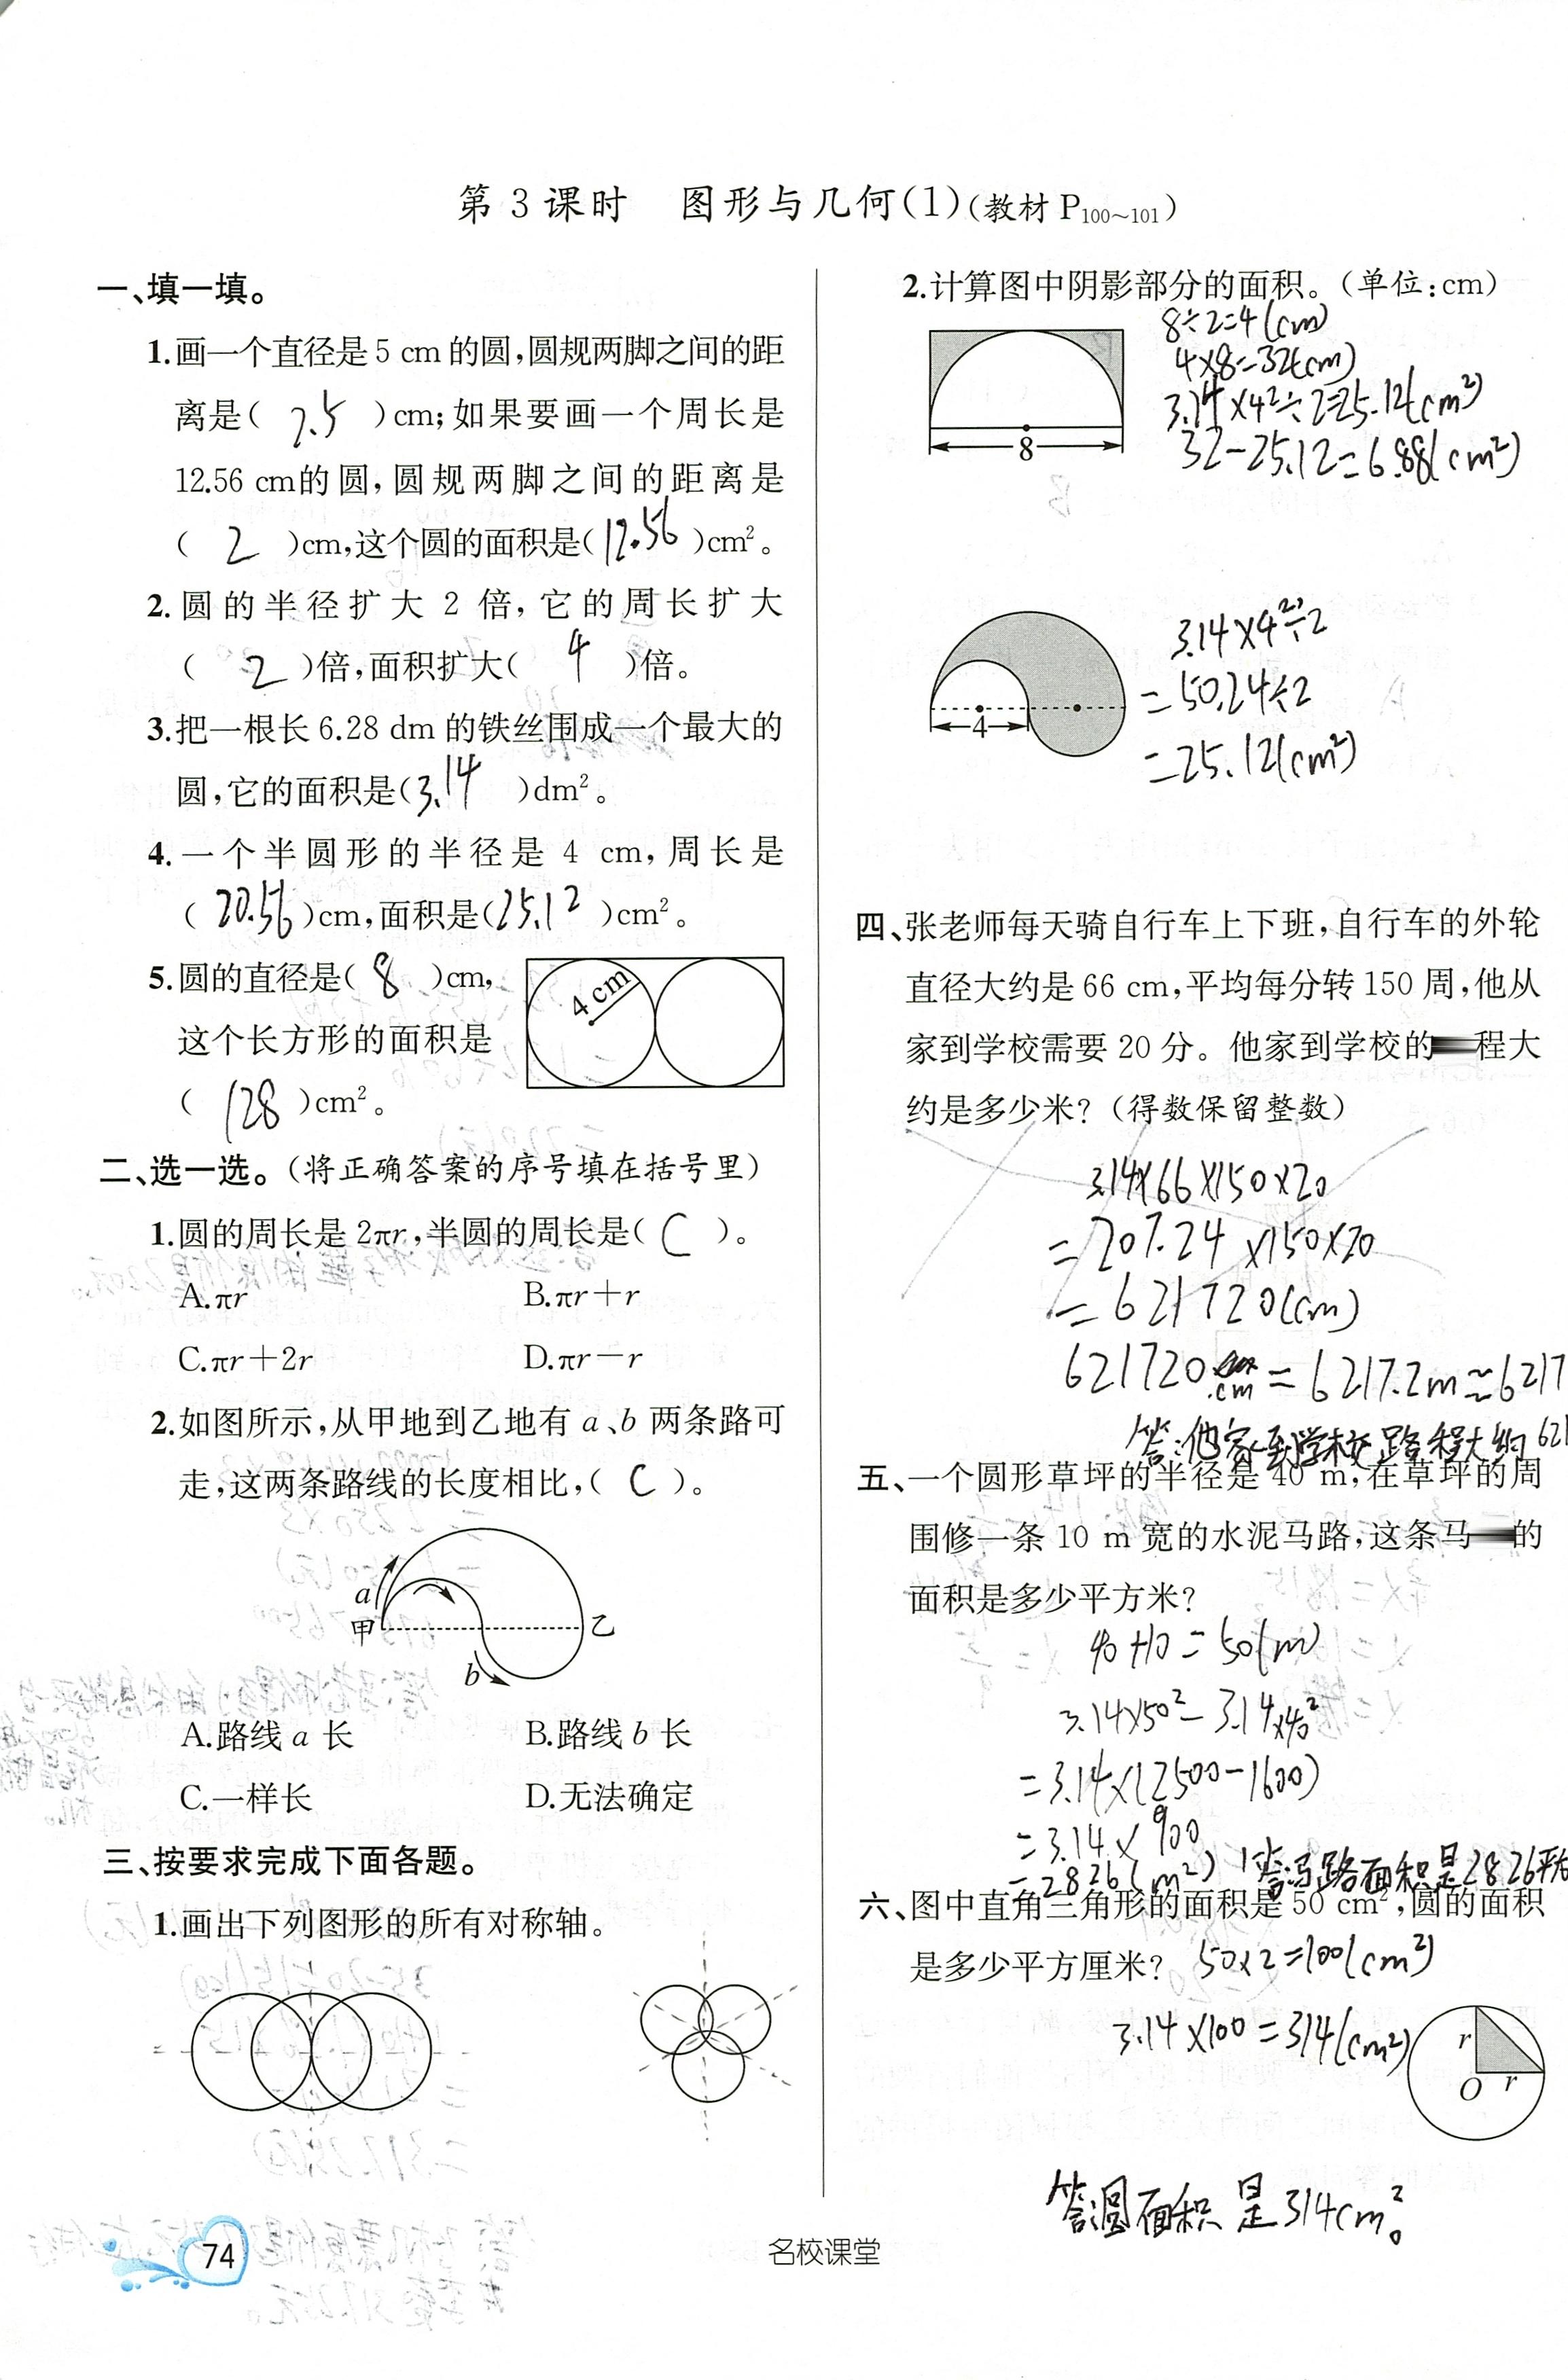 第3课时 图形与几何(1)(教材P100~101)
一、填一填。
1.画一个直径是5 cm的圆,圆规两脚之间的距
离是( 2.5 )cm;如果要画一个周长是
12.56 cm的圆,圆规两脚之间的距离是
( 2 )cm,这个圆的面积是(12.56)cm²。
2.圆的半径扩大2倍,它的周长扩大
( 2 )倍,面积扩大( 4 )倍。
3.把一根长6.28 dm的铁丝围成一个最大的
圆,它的面积是(3.14)dm²。
4.一个半圆形的半径是4 cm,周长是
(20.56)cm,面积是(25.12)cm²。
5.圆的直径是( 8 )cm,
这个长方形的面积是
( 128 )cm²。
4 cm
二、选一选。(将正确答案的序号填在括号里)
1.圆的周长是2πr,半圆的周长是( C )。
A.πr B.πr+r
C.πr+2r D.πr-r
2.如图所示,从甲地到乙地有a、b两条路可
走,这两条路线的长度相比,( C )。
a
甲 乙
b
A.路线a长 B.路线b长
C.一样长 D.无法确定
三、按要求完成下面各题。
1.画出下列图形的所有对称轴。
74
名校课堂
2.计算图中阴影部分的面积。(单位:cm)
8
8÷2=4(cm)
4×8=32(cm)
3.14×4²÷2=25.12(cm²)
32-25.12=6.88(cm²)
4
3.14×4²÷2
=50.24÷2
=25.12(cm²)
四、张老师每天骑自行车上下班,自行车的外轮
直径大约是66 cm,平均每分转150周,他从
家到学校需要20分。他家到学校的程大
约是多少米?(得数保留整数)
3.14×66×150×20
=207.24×150×20
=621720(cm)
621720cm=6217.2m≈6217
答:他家到学校路程大约621
五、一个圆形草坪的半径是40 m,在草坪的周
围修一条10 m宽的水泥马路,这条马的
面积是多少平方米?
40+10=50(m)
3.14×50²-3.14×40²
=3.14×(2500-1600)
=3.14×900
=2826(m²) 答:马路面积是2826平
六、图中直角三角形的面积是50 cm²,圆的面积
是多少平方厘米? 50×2=100(cm²)
3.14×100=314(cm²)
r
O r
答:圆面积是314cm²。